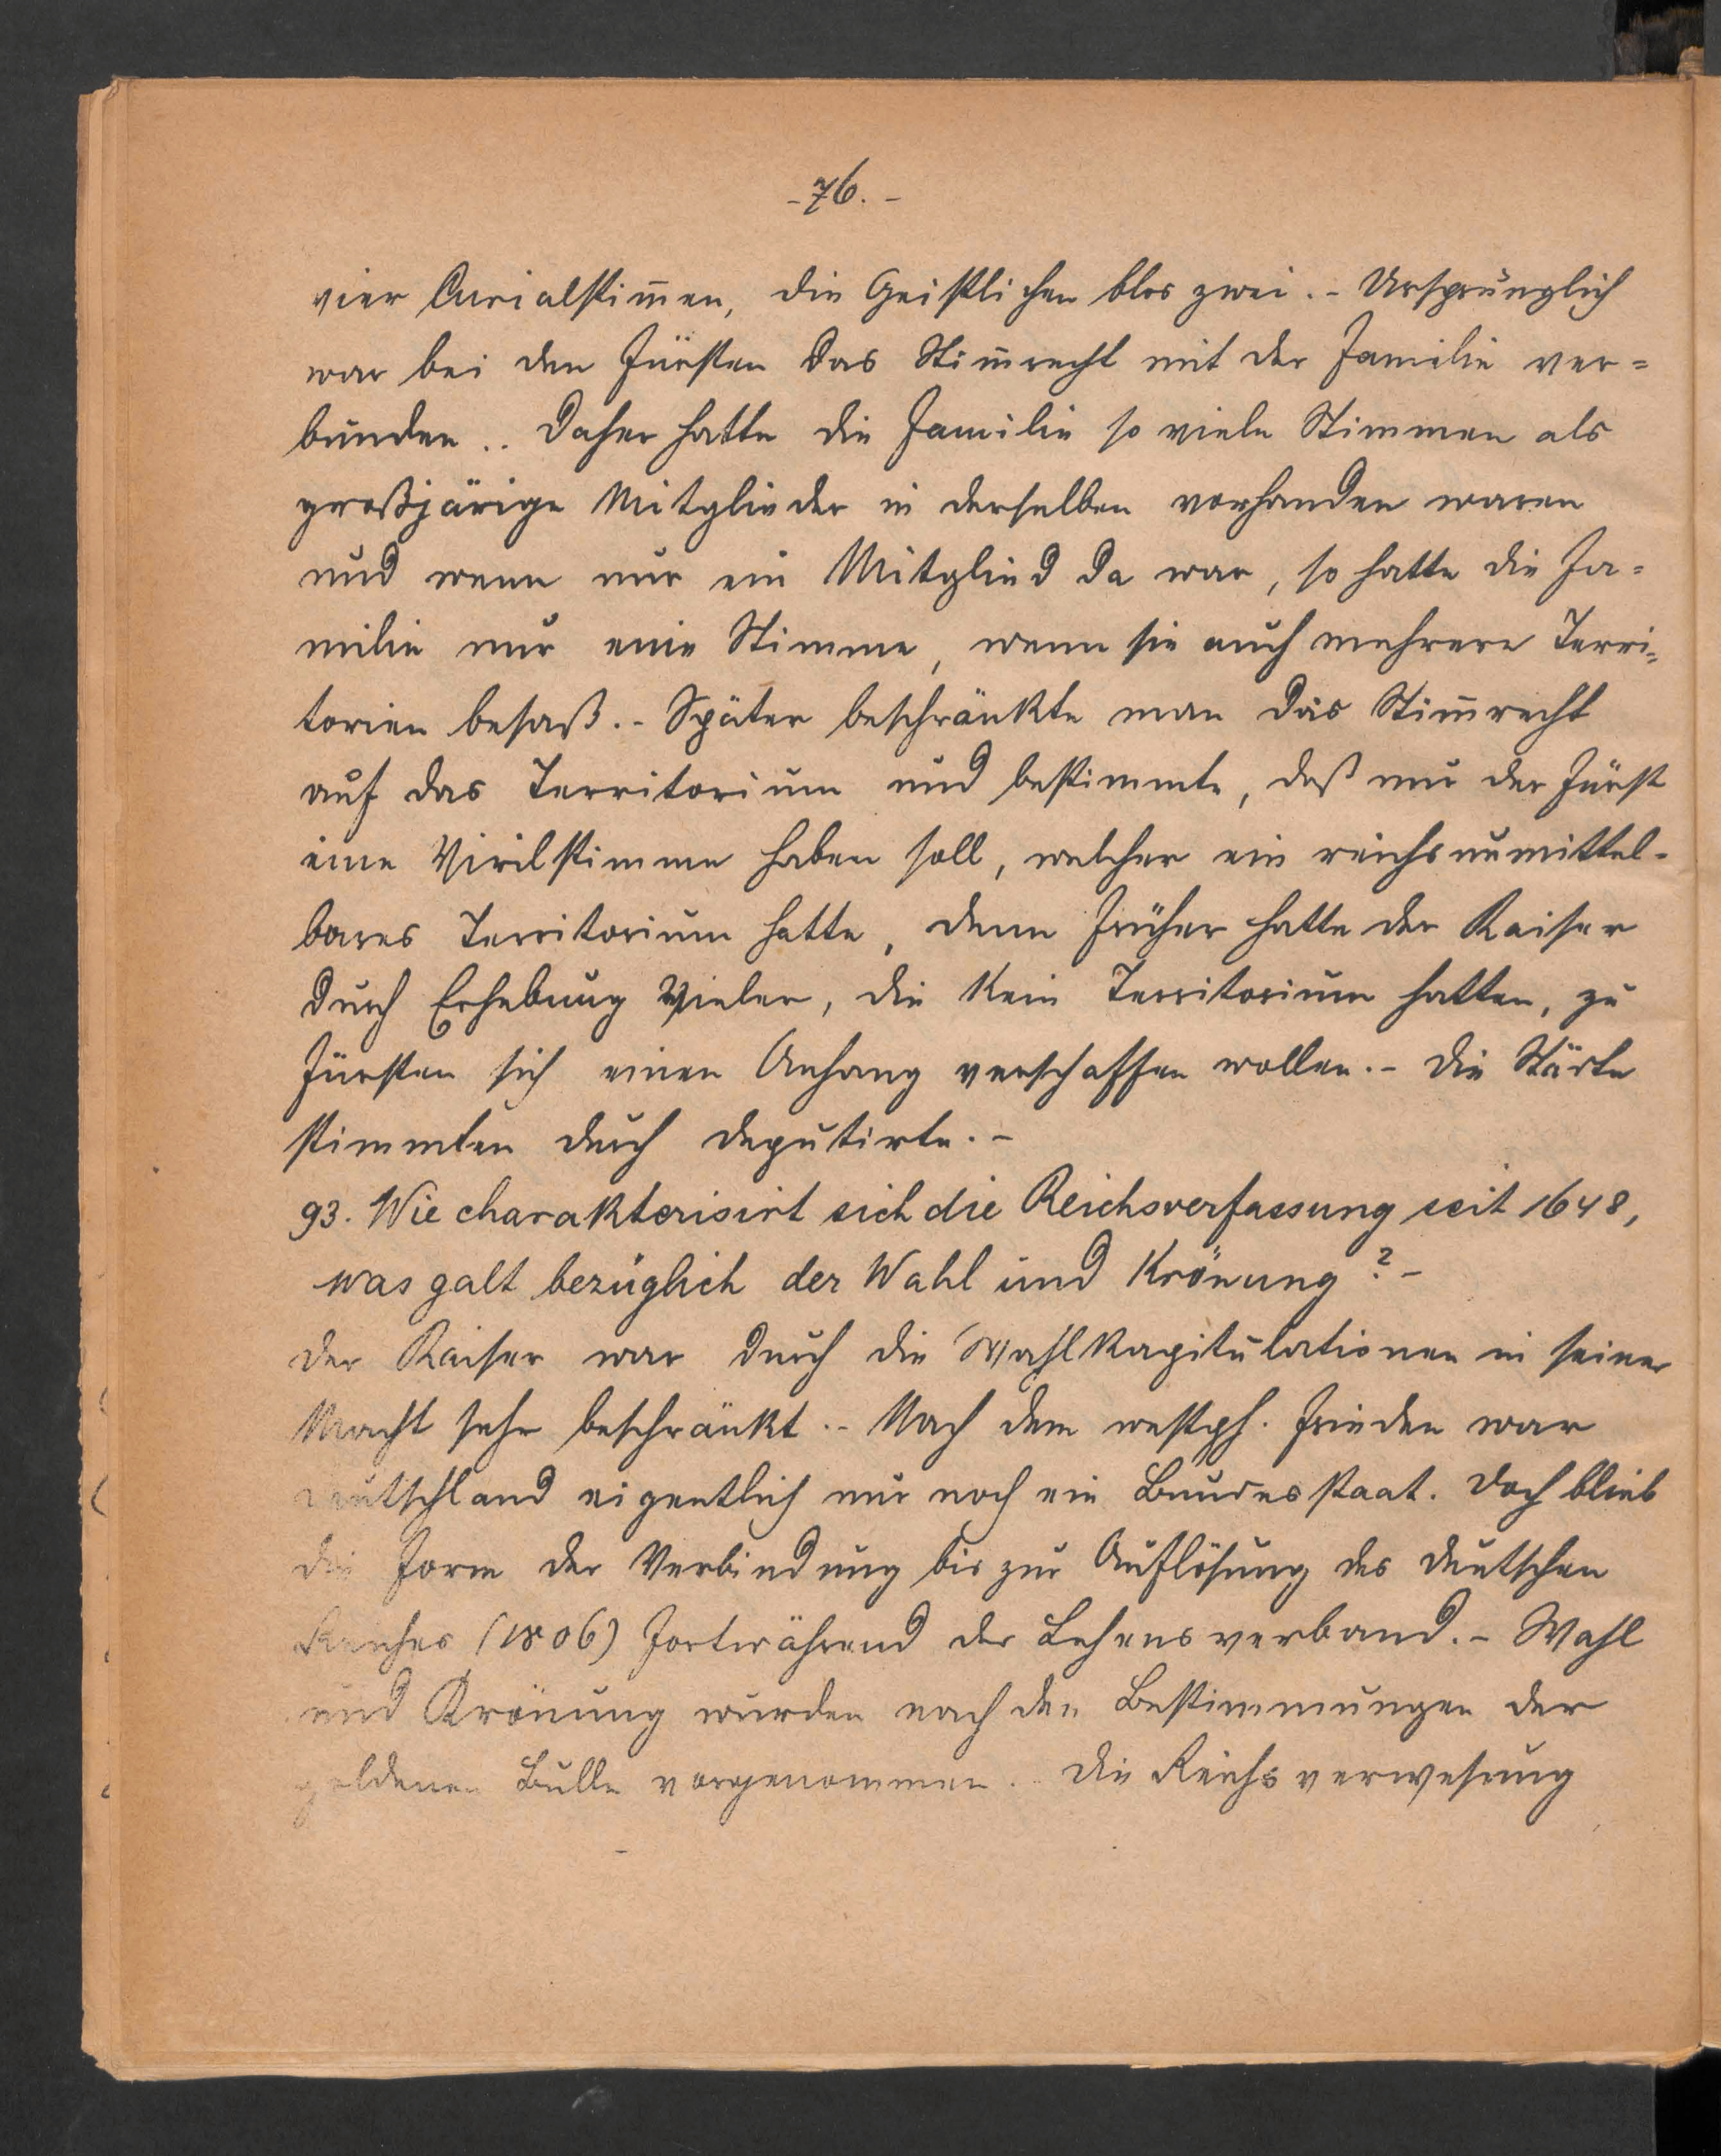 - 76. -
vier Curialstim̅en, die Geistlichen blos zwei. - Ursprünglich
war bei den Fürsten das Stim̅recht mit der Familie ver=
bunden.. Daher hatte die Familie so viele Stimmen als
großjärige Mitglieder in derselben vorhanden waren
und wenn nur ein Mitglied da war, so hatte die Fa=
milie nur eine Stimme, wenn sie auch mehrere Terri=
torien besaß. - Später beschränkte man das Stim̅recht
auf das Territorium und bestimmte, daß nur der Fürst
eine Virilstimme haben soll, welcher ein reichsunmittel-
bares Territorium hatte, denn früher hatte der Kaiser
durch Erhebung Vieler, die kein Territorium hatten, zu
Fürsten sich einen Anhang verschaffen wollen. - Die Städte
stimmten durch Deputirte. -
93. Wie charakterisirt sich die Reichsverfassung seit 1648,
was galt bezüglich der Wahl und Krönung? -
Der Kaiser war durch die Wahlkapitulationen in seiner
Macht sehr beschränkt. - Nach dem westph. Frieden war
Deutschland eigentlich nur noch ein Bundesstaat. Doch blieb
die Form der Verbindung bis zur Auflösung des deutschen
Reiches (1806) fortwährend der Lehensverband. - Wahl
und Krönung wurden nach den Bestimmungen der
goldenen Bulle vorgenommen. - Die Reichsverwesung